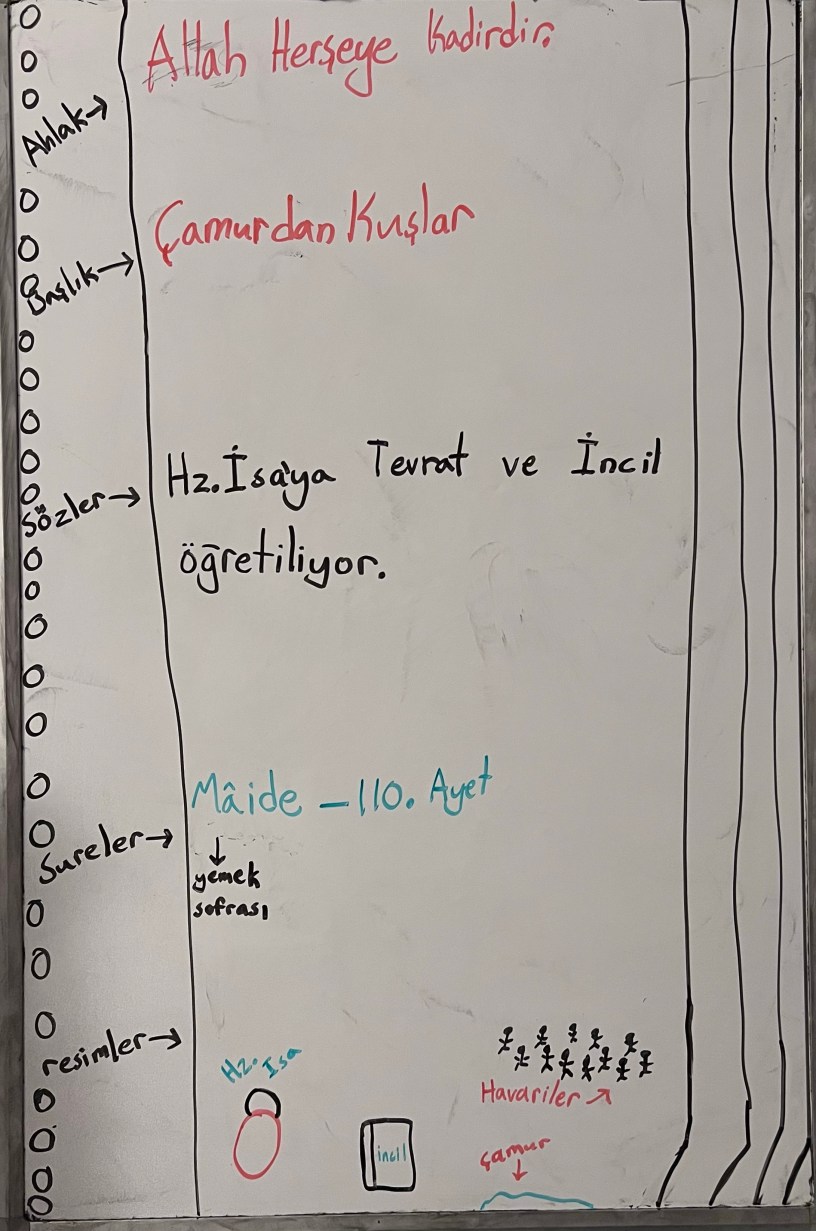 Allah Herşeye Kadirdir.
Ahlak→
Çamurdan Kuşlar
Başlık→
Hz.İsa'ya Tevrat ve İncil
Sözler→
öğretiliyor.
Mâide –110. Ayet
Sureler→
↓
yemek
sofrası
resimler→
Hz. Isa
Havariler↗
incil
çamur
↓